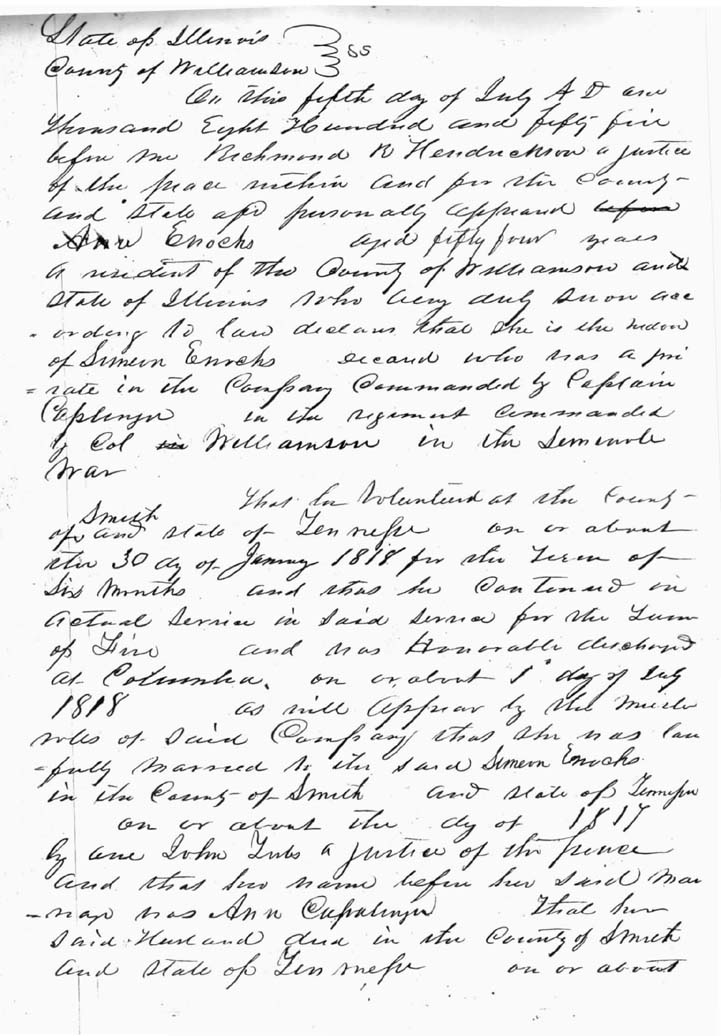 State of Illinois } ss
County of Williamson }
On this fifth day of July A D one
thousand Eight Hundred and fifty five
before me Richmond B Hendrickson a justice
of the peace within and for the County
and State afd personally appeared before
Ann Enochs aged fifty four years
a resident of the County of Williamson and
State of Illinois who being duly sworn acc
ording to law declares that she is the widow
of Simeon Enochs deceasd who was a pri
=vate in the Company Commanded by Captain
Caplinger in the regiment commanded
by Col Williamson in the Seminole
War
that he Volunteerd at the County
Smith
of and state of Tennessee on or about
the 30 dy of January 1818 for the Term of
Six Months and that he Continued in
actual Service in said service for the Term
of Five and was Honorable discharged
at Columbia, on or about 1st day of July
1818 as will appear by the Muster
roles of said Company that she was law
=fully Married to the said Simeon Enochs
in the County of Smith and State of Tennessee
on or about the dy of 1817
by one John a Justice of the peace
and that her name before her said Mar
=riage was Ann That her
said Husband died in the County of Smith
and State of Tennessee on or about